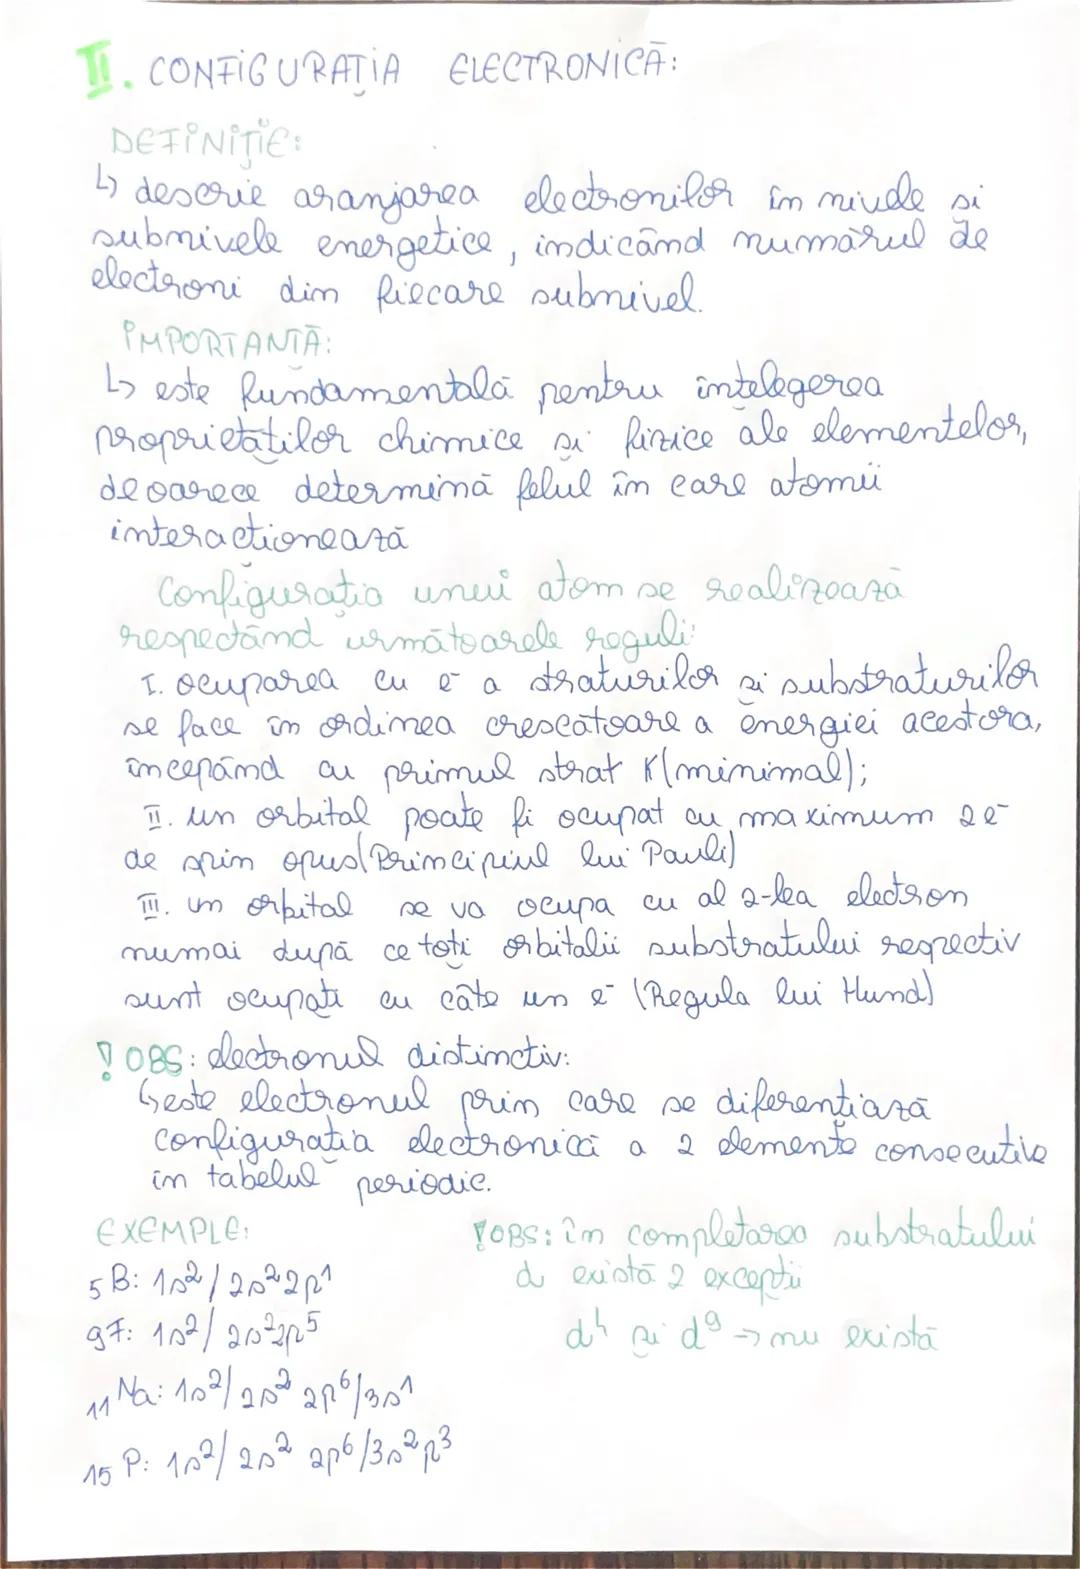 II. CONFIGURAȚIA ELECTRONICĂ:
DEFINIȚIE:
↳ descrie aranjarea electronilor în nivele si
subnivele energetice, indicând numărul de
electroni din fiecare subnivel.
IMPORTANȚĂ:
↳ este fundamentală pentru înțelegerea
proprietăților chimice și fizice ale elementelor,
deoarece determină felul în care atomii
interacționează
Configurația unui atom se realizează
respectând următoarele reguli:
I. ocuparea cu e⁻ a straturilor și substraturilor
se face în ordinea crescătoare a energiei acestora,
începând cu primul strat K(minimal);
II. un orbital poate fi ocupat cu maximum 2e⁻
de spin opus(Principiul lui Pauli)
III. un orbital se va ocupa cu al 2-lea electron
numai după ce toți orbitalii substratului respectiv
sunt ocupați cu câte un e⁻ (Regula lui Hund)
! OBS: electronul distinctiv:
↳ este electronul prin care se diferențiază
configurația electronică a 2 elemente consecutive
în tabelul periodic.
EXEMPLE:
₅B: 1s²/2s²2p¹
₉F: 1s²/2s²2p⁵
₁₁Na: 1s²/2s² 2p⁶/3s¹
₁₅P: 1s²/2s² 2p⁶/3s²p³
! OBS: în completarea substratului
d există 2 excepții
d⁴ și d⁹ → nu există